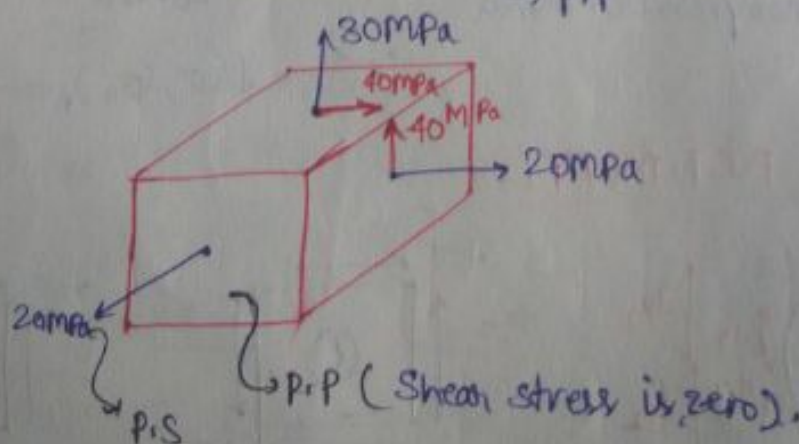 30MPa
40mpa
40MPa
20mpa
20mpa
P.P (Shear stress is zero).
P.S